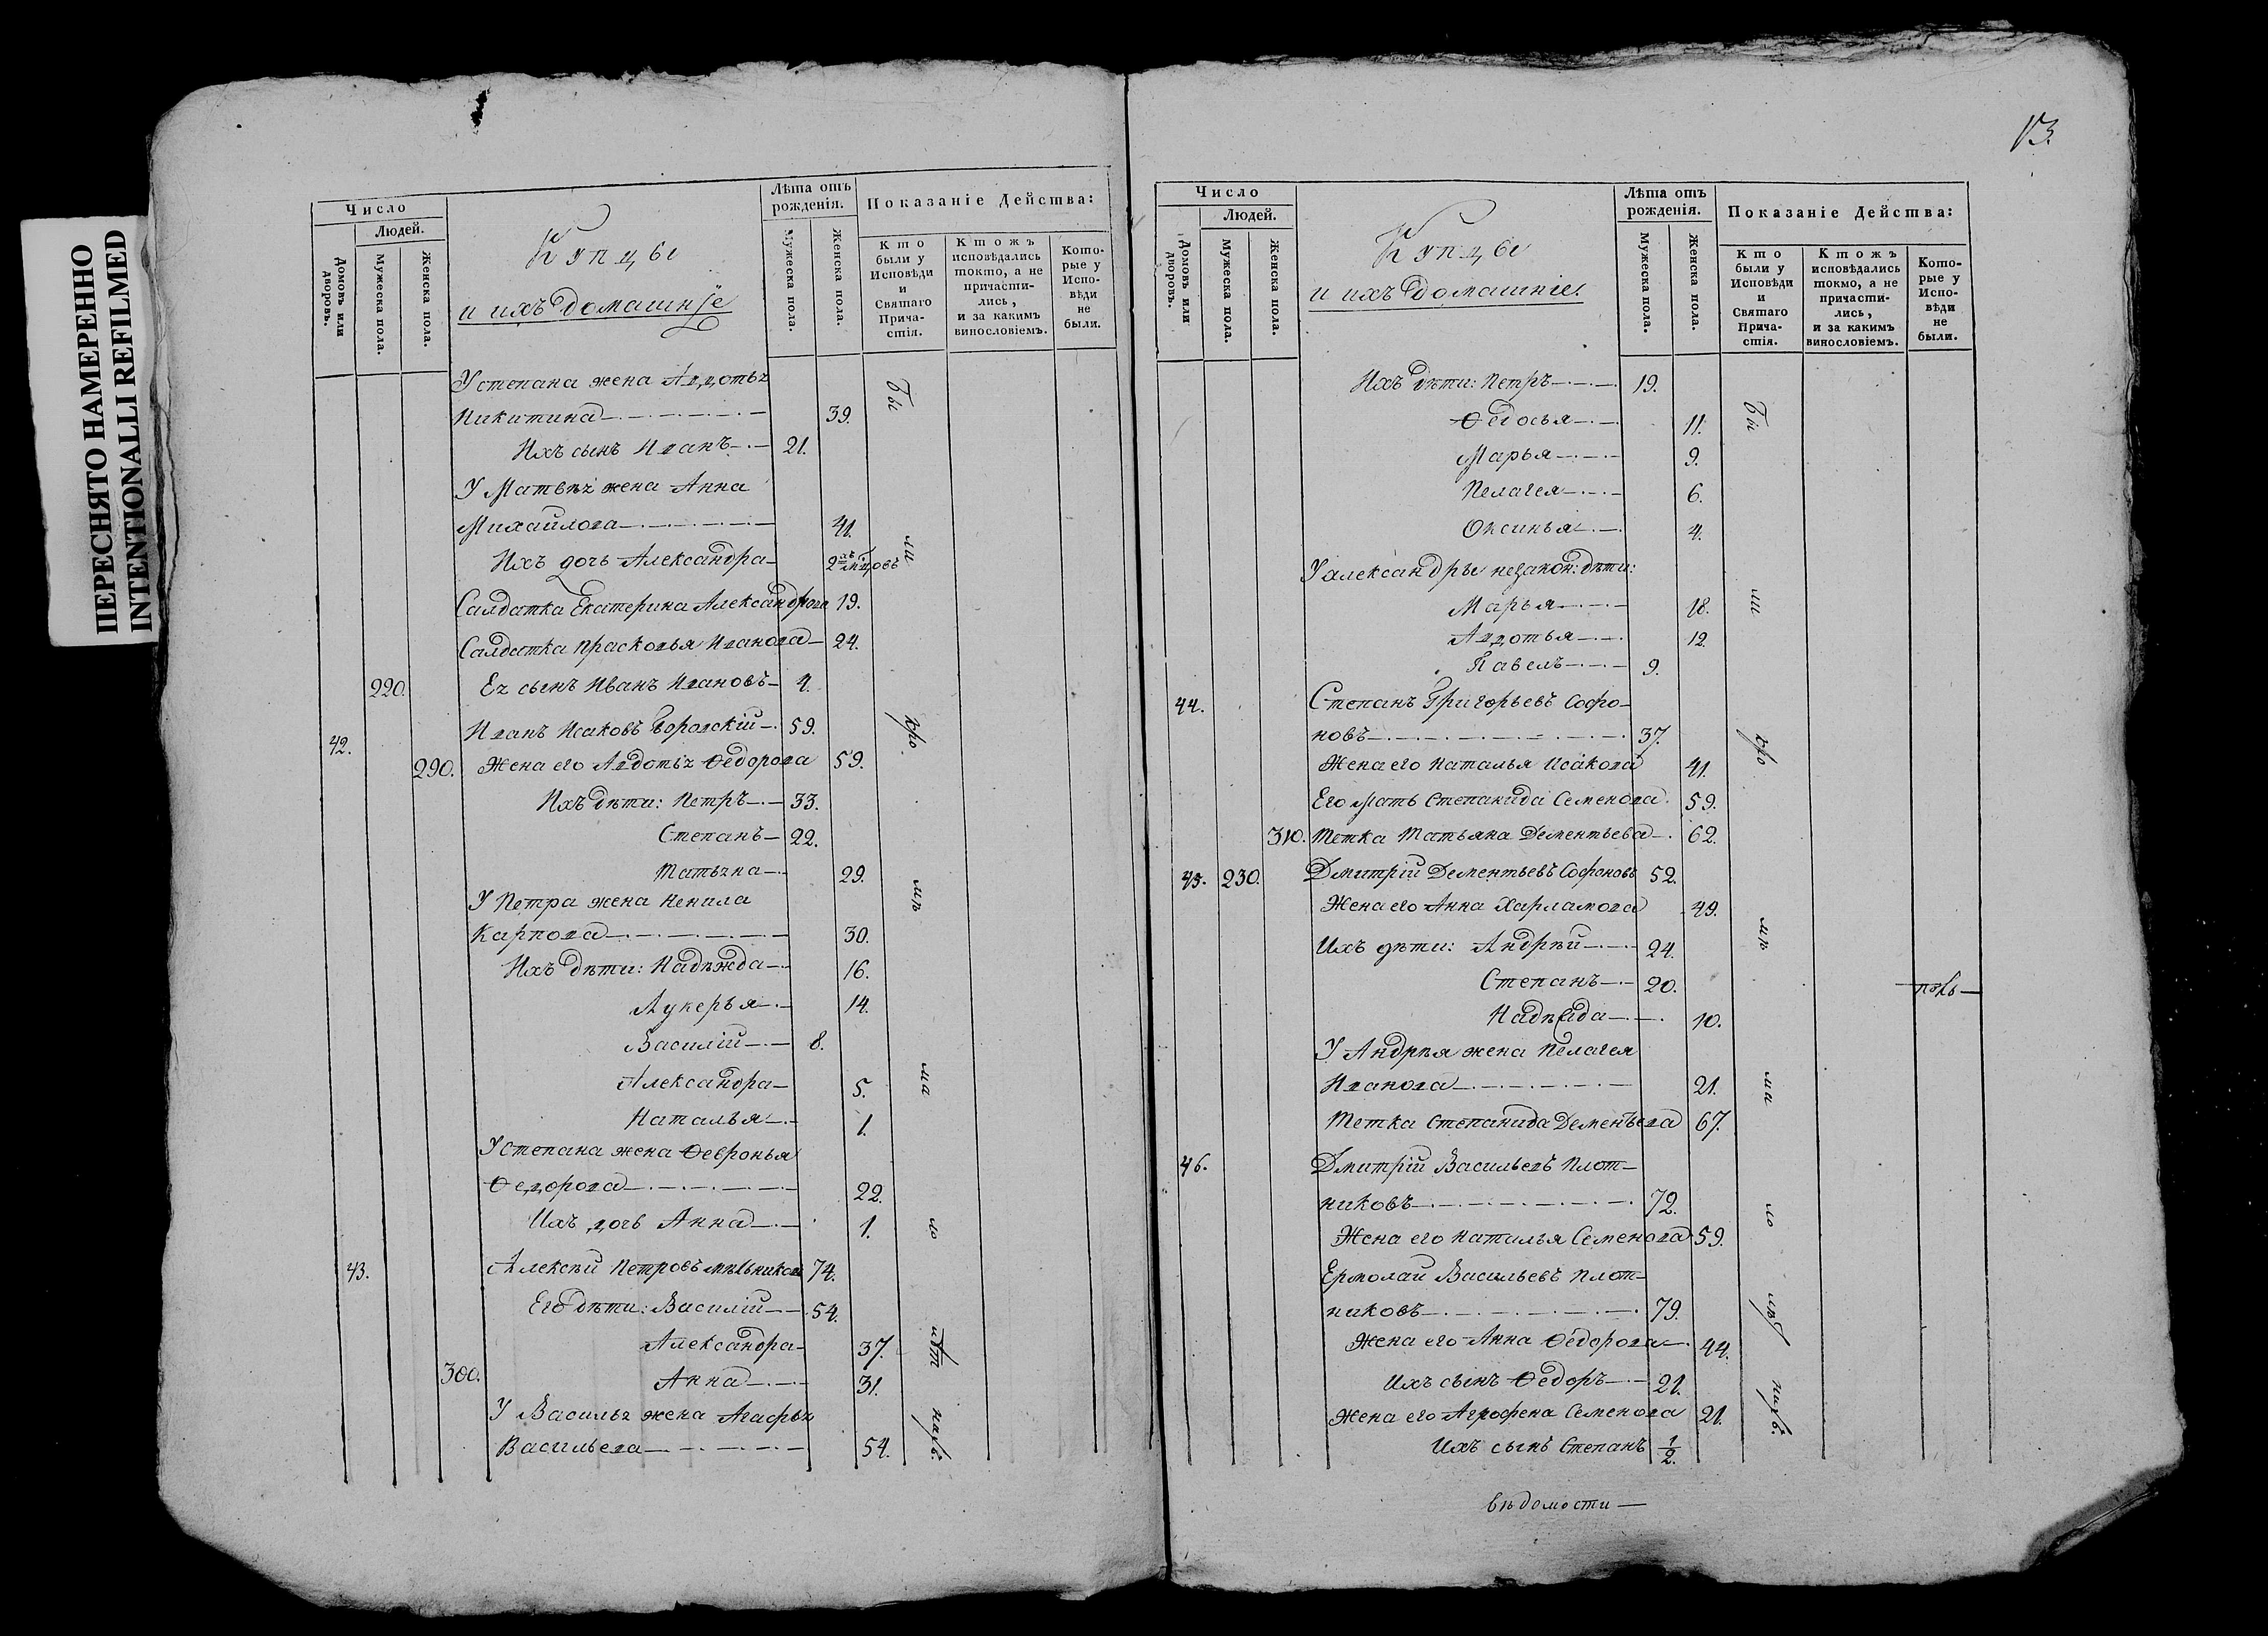 ПЕРЕСНЯТО НАМЕРЕННО
INTENTIONALLI REFILMED
Число
Людей.
Домовъ или дворовъ.
Мужеска пола.
Женска пола.
Купцы
и ихъ домашнiе
Лѣта отъ рожденiя.
Мужеска пола.
Женска пола.
Показанiе Действа:
Кто были у Исповѣди и Святаго Прича-стiя.
Ктожъ исповѣдались токмо, а не причасти-лись, и за какимъ винословiемъ.
Кото-рые у Испо-вѣди не были.
У степана жена Авдотья
Никитина 39.
Ихъ сынъ Иванъ 21.
У Матвѣя жена Анна
Михайлова 41.
Ихъ дочь Александра 2
Салдатка Екатерина Александрова 19.
Салдатка Прасковья Иванова 24.
220. Ея сынъ Иванъ Ивановъ 4.
42. Иванъ Исаковъ 59.
290. Жена его Авдотья Ѳедорова 59.
Ихъ дѣти: Петръ 33.
Степанъ 22.
Татьяна 29.
У Петра жена Ненила
Карпова 30.
Ихъ дѣти: Надежда 16.
Лукерья 14.
Василiй 8.
Александра 5.
Наталья 1.
У Степана жена Ѳевронья
Ѳедорова 22.
Ихъ дочь Анна 1.
43. Алексѣй Петровъ Мѣльников 74.
Его дѣти: Василiй 54.
Александра 37.
300. Анна 31.
У Василья жена Агафья
Васильева 54.
бы
ли
у
13.
Число
Людей.
Домовъ или дворовъ.
Мужеска пола.
Женска пола.
Купцы
и ихъ домашнiе.
Лѣта отъ рожденiя.
Мужеска пола.
Женска пола.
Показанiе Действа:
Кто были у Исповѣди и Святаго Прича-стiя.
Ктожъ исповѣдались токмо, а не причасти-лись, и за какимъ винословiемъ.
Кото-рые у Испо-вѣди не были.
Ихъ дѣти: Петръ 19.
Ѳедосья 11.
Марья 9.
Пелагея 6.
Оксинья 4.
У александры незакон: дѣти:
Марья 18.
Авдотья 12.
Павелъ 9.
44. Степанъ Григорьевъ Софо-
новъ 37.
Жена его Наталья Исакова 41.
Его Мать Степанида Семенова 59.
310. Тетка Татьяна Дементьева 62.
45. 230. Дмитрiй Дементьевъ Софоновъ 52.
Жена его Анна Харламова 49.
Ихъ дѣти: Андрѣй 24.
Степанъ 20.
Надежда 10.
У Андрѣя жена Пелагея
Иванова 21.
Тетка Степанида Дементьева 67.
46. Дмитрiй Васильевъ Плот-
никовъ 72.
Жена его Наталья Семенова 59.
Ермолай Васильевъ Плот-
никовъ 79.
Жена его Анна Ѳедорова 44.
Ихъ сынъ Ѳедоръ 21.
Жена его Агрофена Семенова 21.
Ихъ сынъ Степанъ 1/2.
бы
ли
вѣдомости